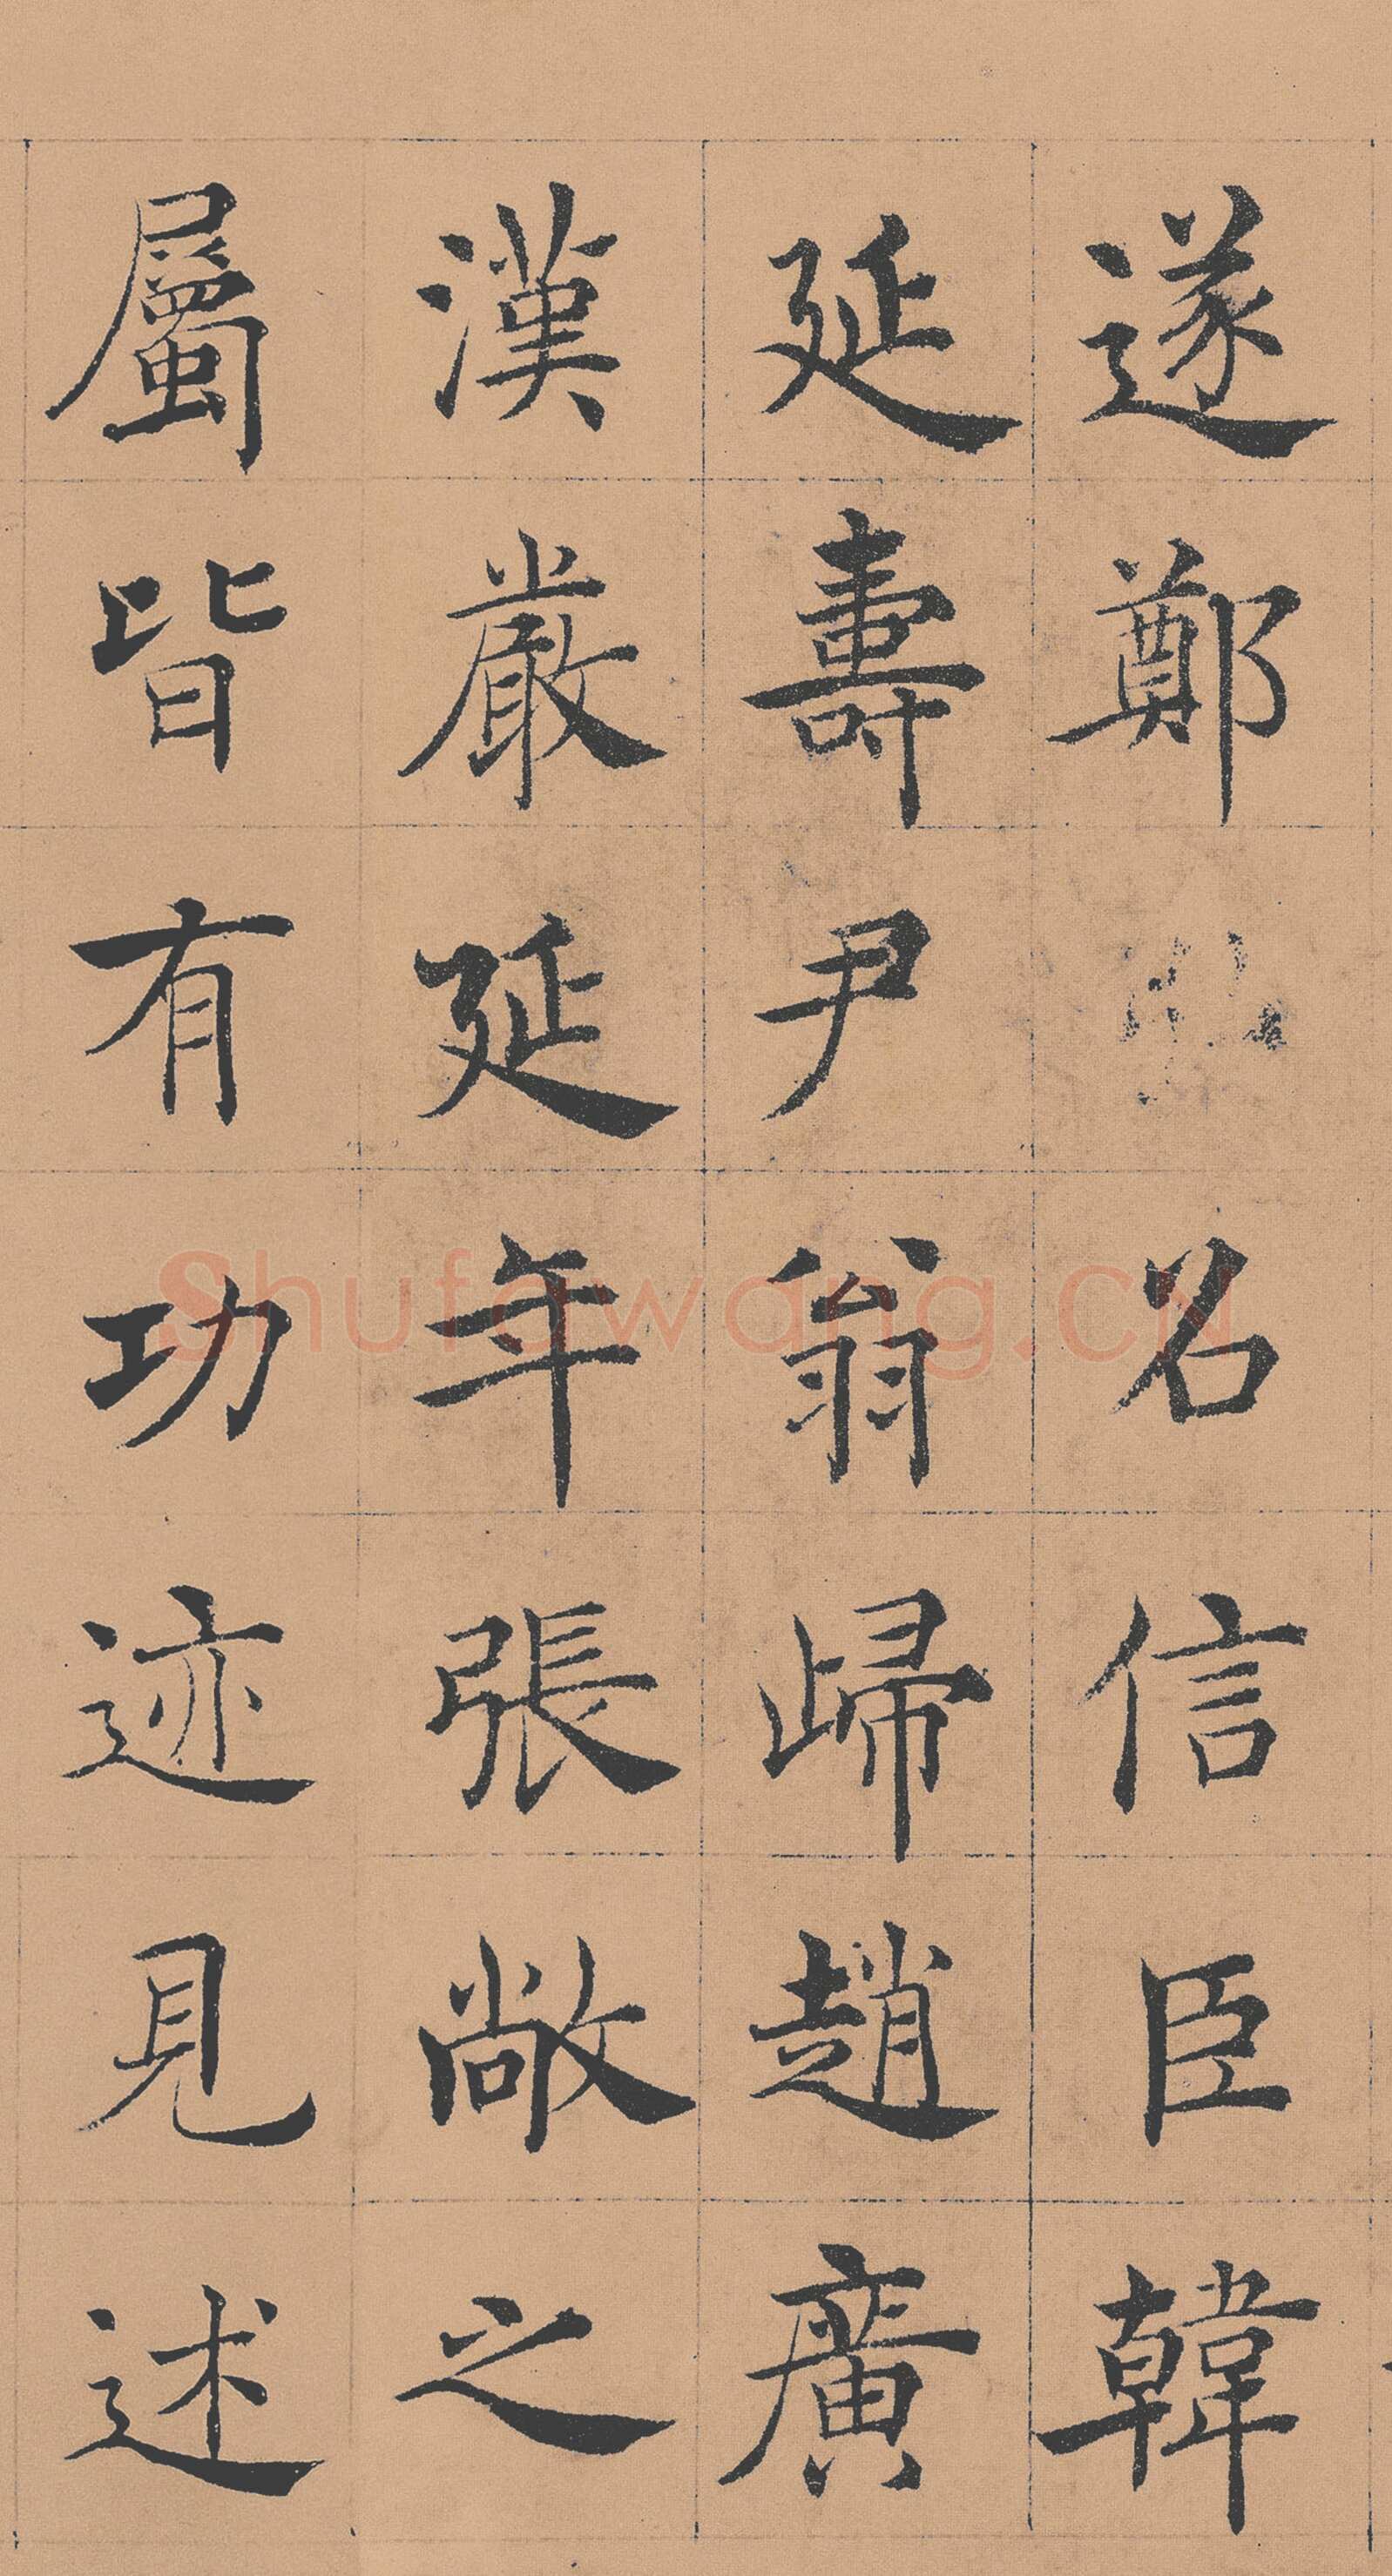 遂鄭名信臣韓
延壽尹翁歸趙廣
漢嚴延年張敞之
屬皆有功迹見述
Shufawang.CN